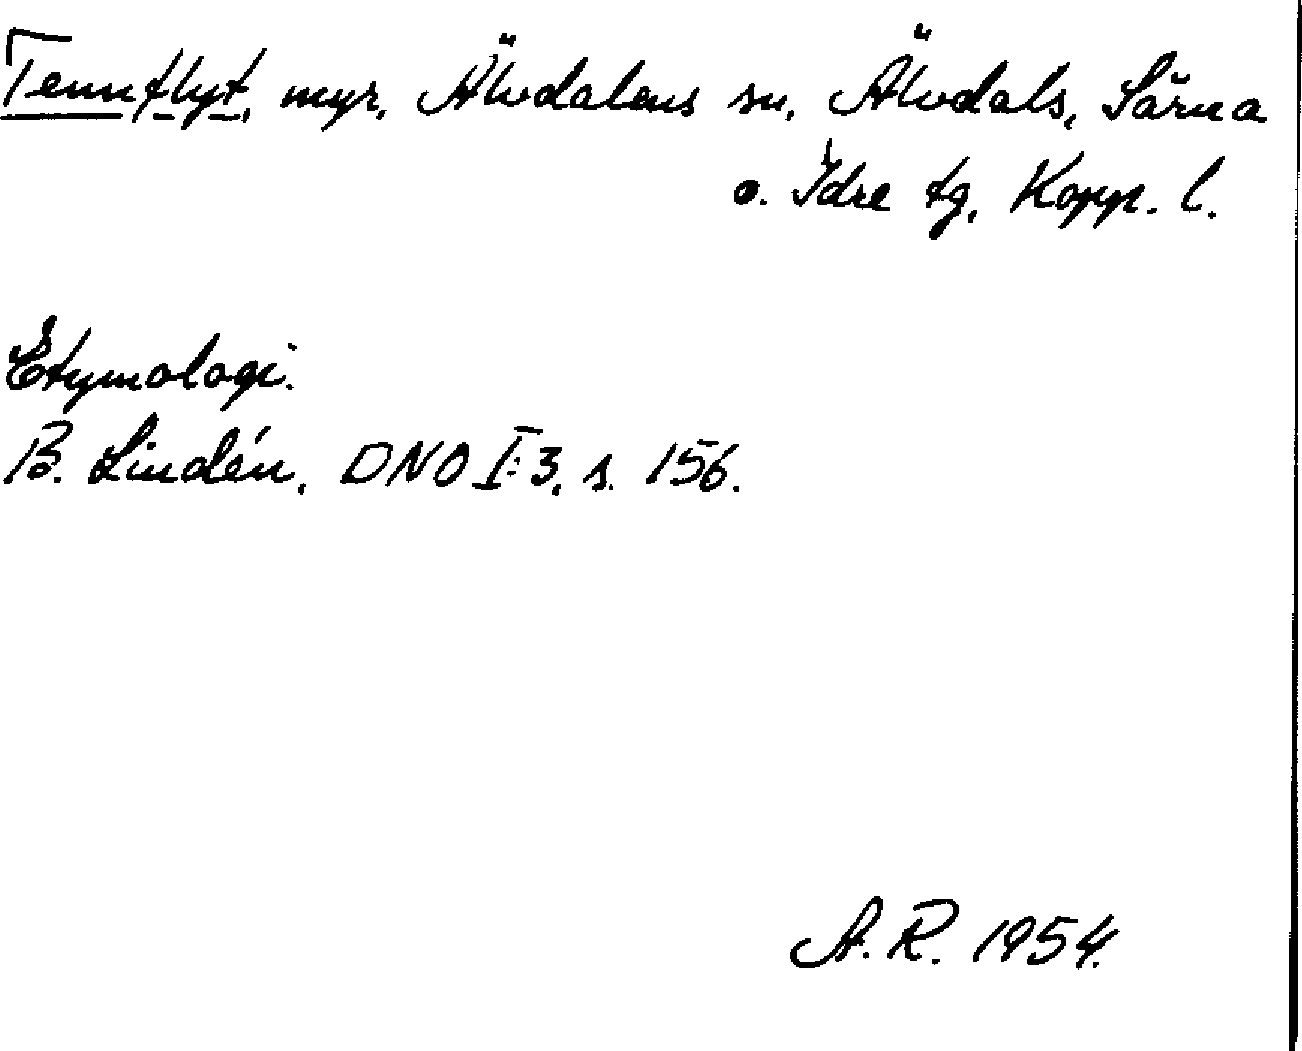 Tennflyt, myr, Älvdalens sn, Älvdals, Särna
o. Idre tg, Kopp. l.
Etymologi.
B. Lindén, DNO I:3, s. 156.
A. R. 1954.